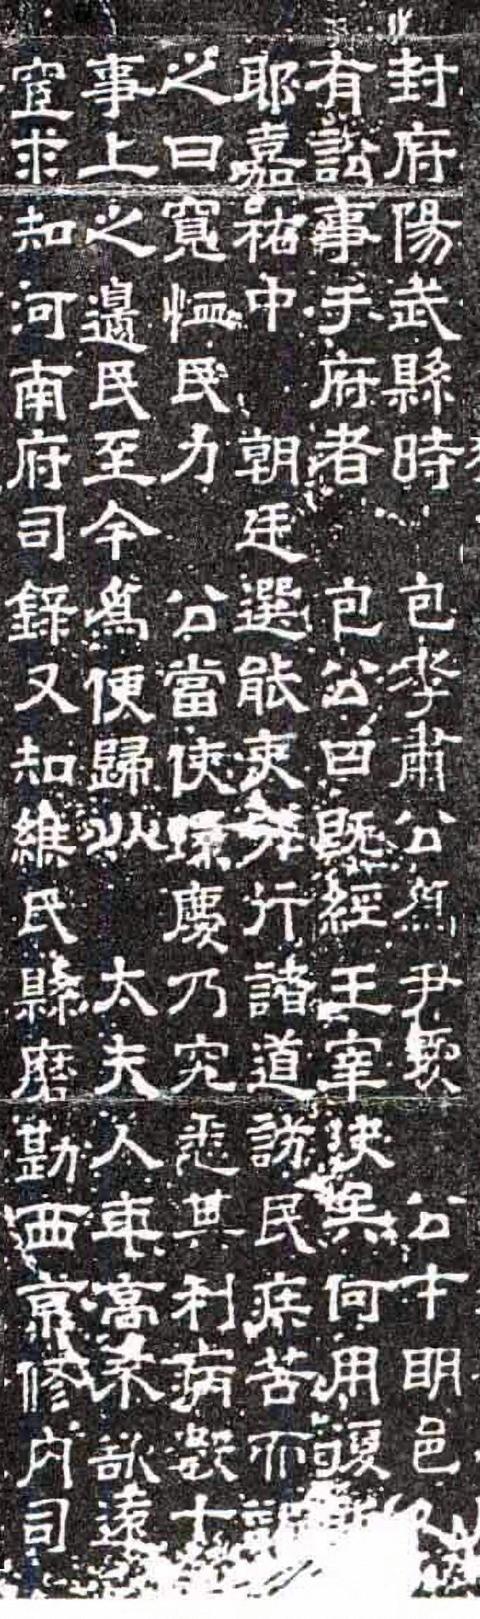 封府陽武縣時 包孝肅公爲尹 公才明邑
有訟事于府者 包公曰既經王宰決矣何用復
耶嘉祐中 朝廷選能吏分行諸道訪民疾苦而謂
之曰寬恤民力 公當使環慶乃究悉其利病數十
事上之邊民至今爲便歸以 太夫人年高 欲遠
宦求知河南府司錄又知緱氏縣磨勘西京修内司